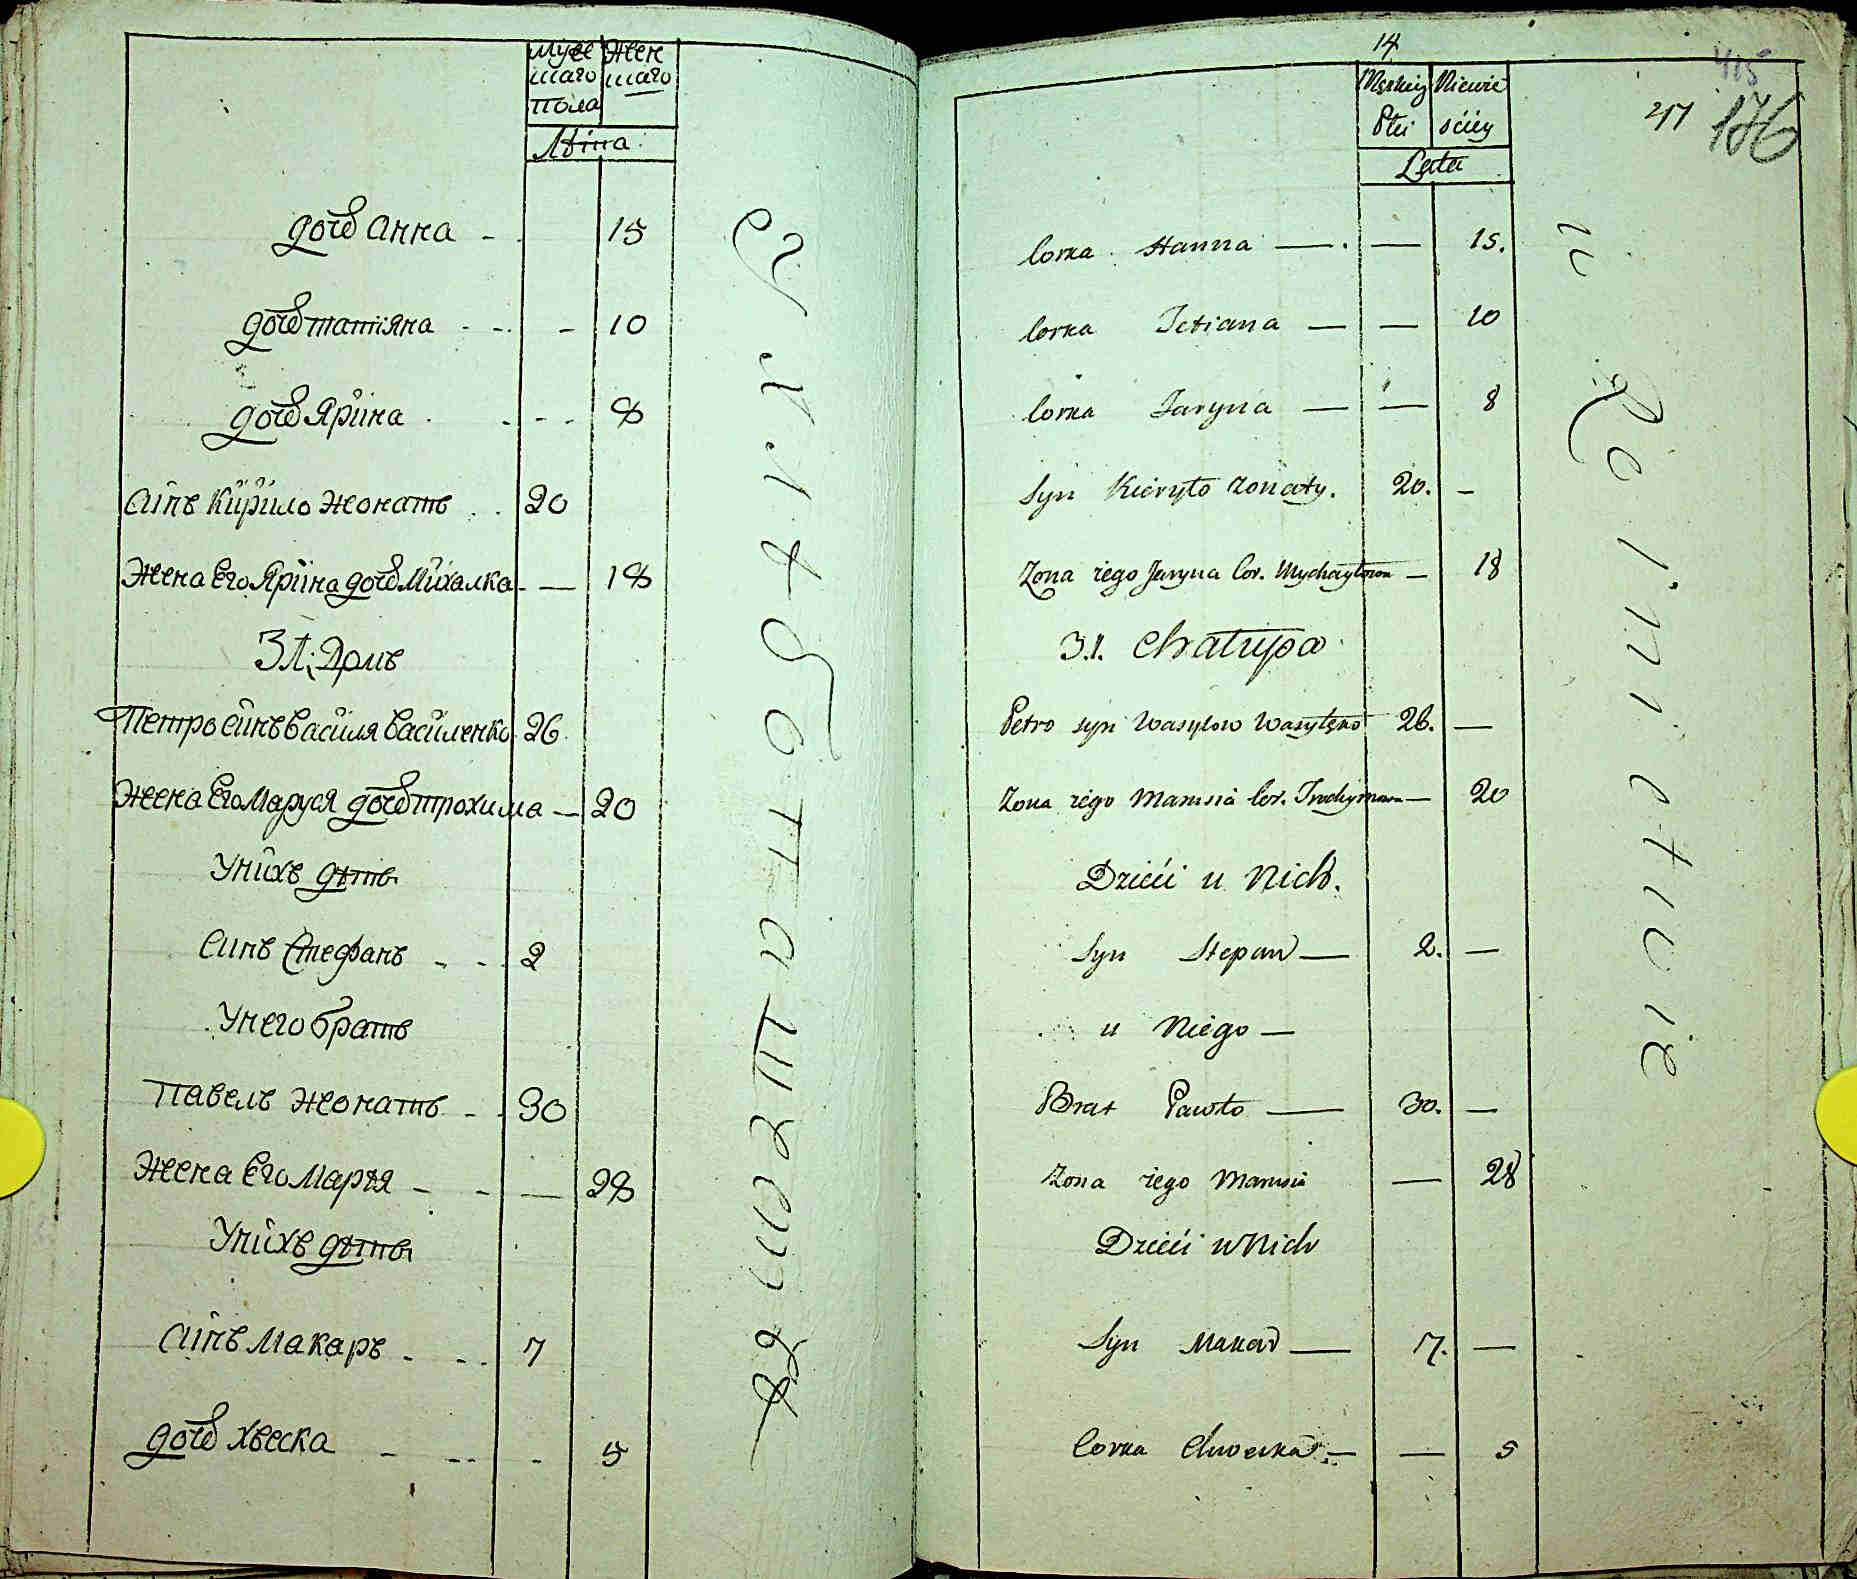 Муже Жен
шаго шаго
пола
Лѣта
дочь Анна - 15
дочь татіяна - - - 10
дочь Яріина - - - 8
Сiнъ Кiрiило жонатъ . . 20
Жена Его Яріина дочь Мiхалка - — 18
31; Домъ
Петро сiнъ василя василенко 26.
Жена Его Маруся дочь трохима — 20
Унiхъ дѣтѣ
Синъ Стефанъ - - - 2
Унего братъ
Павелъ жонатъ - - 30
Жена Его Марѣя - - — 28
Унiхъ дѣтѣ
Сiнъ Макаръ - - - 7
дочь хвеска - - - - 5
14
415
217 176
Męskiey Niewie
Płci ściey
Lata
Corka Hanna — . — 15.
Corka Tetiana — — 10
Corka Jaryna — — 8
Syn Kieryło żonaty. 20. -
Żona iego Jaryna Cor. Mychayłowa — 18
31. Chałupa
Petro syn Wasylow Wasylęko 26. —
Żona iego Marusia Cor. Trochymowa — 20
Dzieci u Nich.
Syn Stepan — 2. —
u Niego —
Brat Pawło — 30. —
Żona iego Marusia — 28
Dzieci u Nich
Syn Makar — 7. —
Corka Chweska — — 5